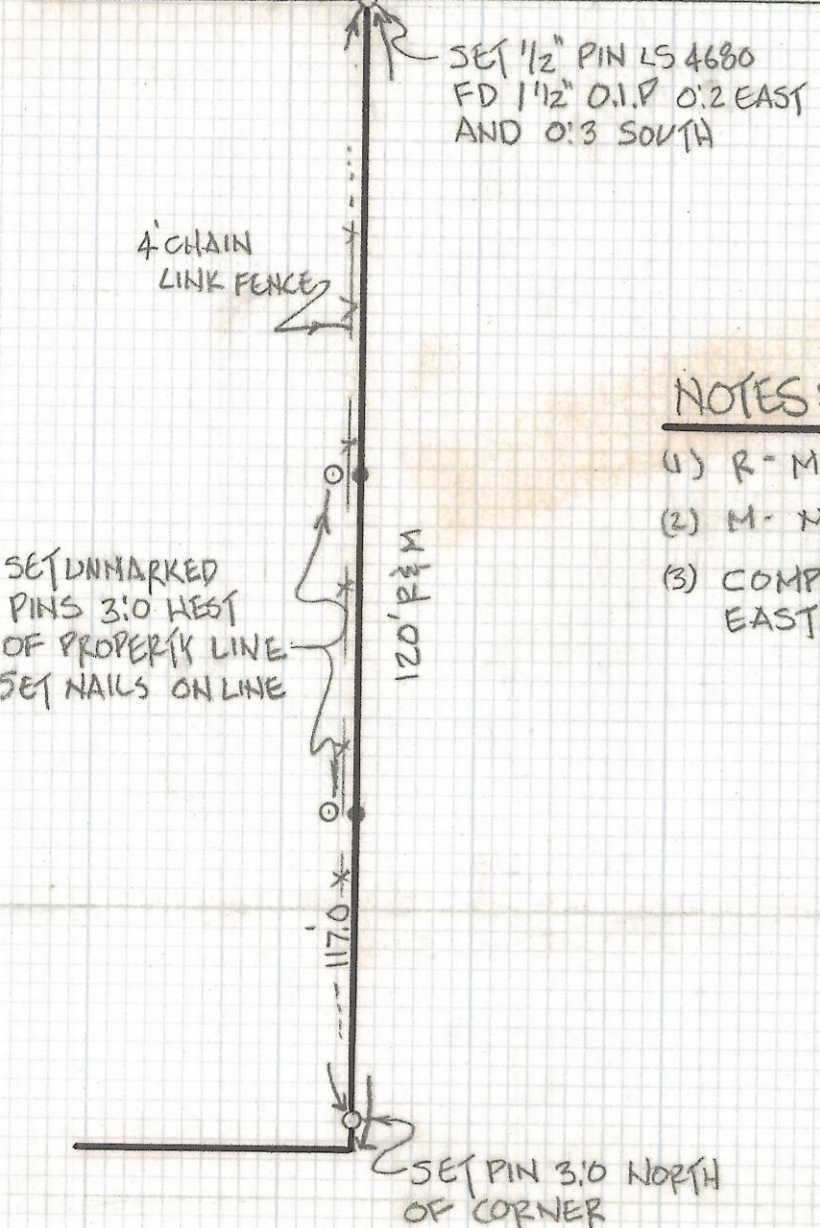 SET 1/2" PIN LS 4680
FD 1 1/2" O.I.P 0'.2 EAST
AND 0'.3 SOUTH
4' CHAIN
LINK FENCE
NOTES:
(1) R - M
(2) M -
(3) COMP
EAST
SET UNMARKED
PINS 3'.0 WEST
OF PROPERTY LINE
SET NAILS ON LINE
120' R & M
117'.0
SET PIN 3'.0 NORTH
OF CORNER